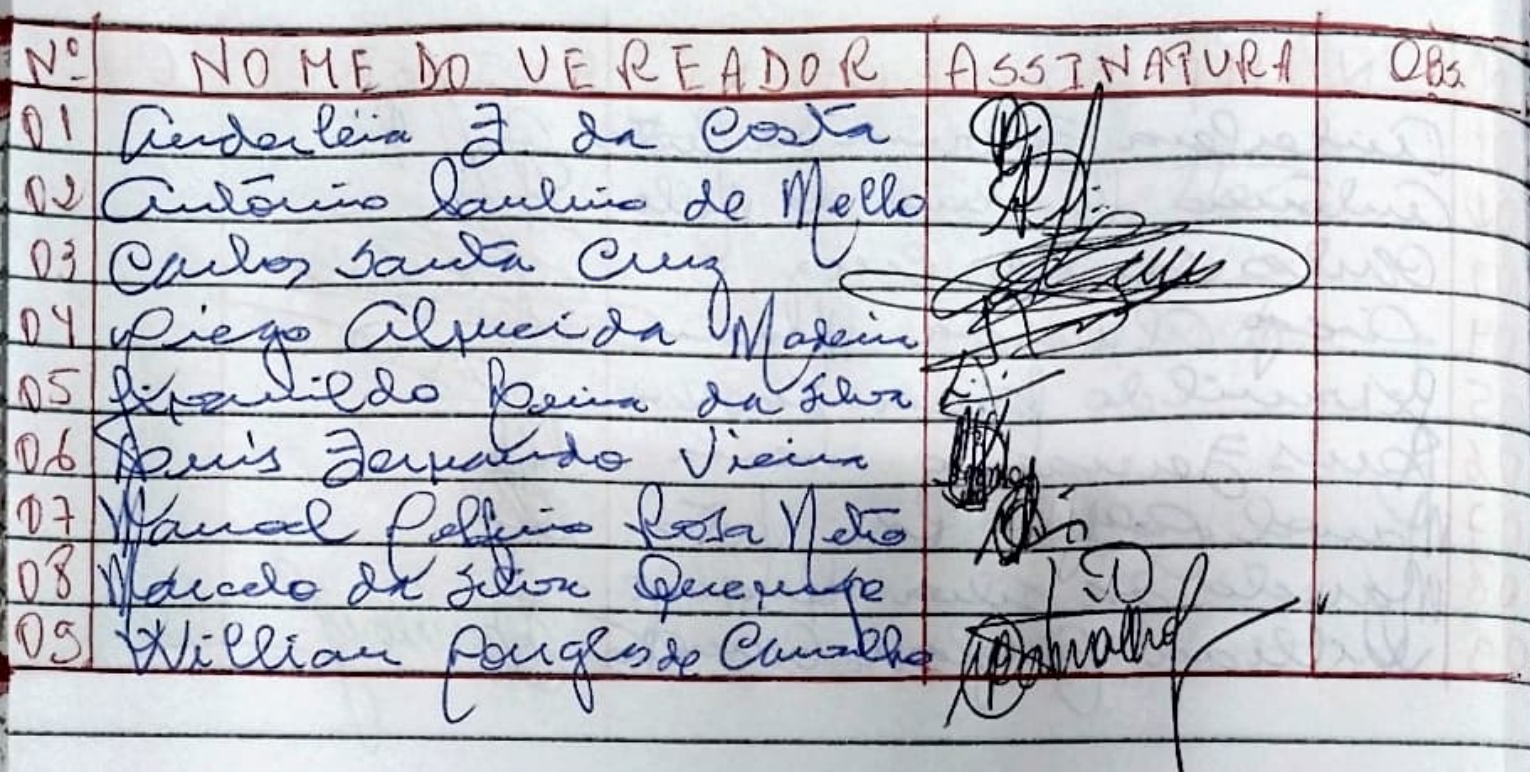 Nº NOME DO VEREADOR ASSINATURA OBS.
01 Anderléia F da Costa
02 Antônio Paulino de Mello
03 Carlos Santa Cruz
04 Diego Almeida Madeira
05 da Silva
06 Luís Fernando Vieira
07 Manoel Rosa Neto
08 Marcelo da Silva
09 Willian Douglas de Carvalho Carvalho